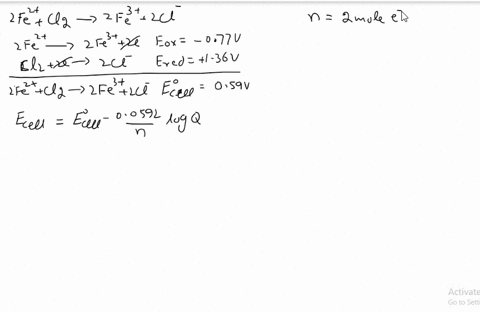 2Fe²⁺ + Cl₂ → 2Fe³⁺ + 2Cl⁻
n = 2 mole e⁻
2Fe²⁺ → 2Fe³⁺ + 2e Eox = −0.77V
Cl₂ + 2e → 2Cl⁻ Ered = +1.36V
2Fe²⁺ + Cl₂ → 2Fe³⁺ + 2Cl⁻ E°cell = 0.59V
Ecell = E°cell − 0.0592/n log Q
Activate
Go to Sett